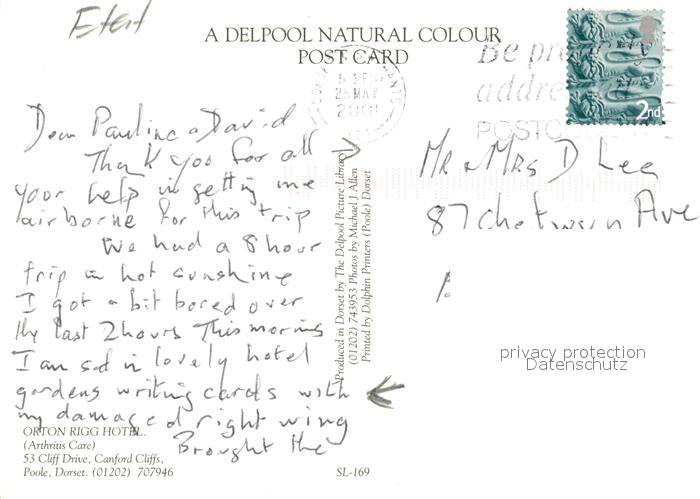 A DELPOOL NATURAL COLOUR
POST CARD
25 MAY
2001
Be properly
addressed
POSTCO
2nd
Dear Pauline & David
Thank you for all
your help in getting me
airborne for this trip
We had a 8 hour
trip in hot sunshine
I got a bit bored over
the last 2 hours This morning
I am sat in lovely hotel
gardens writing cards with
my damaged right wing
Brought the
Produced in Dorset by The Delpool Picture Library
(01202) 743953 Photos by Michael J Allen
Printed by Dolphin Printers (Poole) Dorset
Mr & Mrs D Lee
87 Chetwyn Ave
privacy protection
Datenschutz
ORTON RIGG HOTEL.
(Arthritis Care)
53 Cliff Drive, Canford Cliffs,
Poole, Dorset. (01202) 707946
SL-169